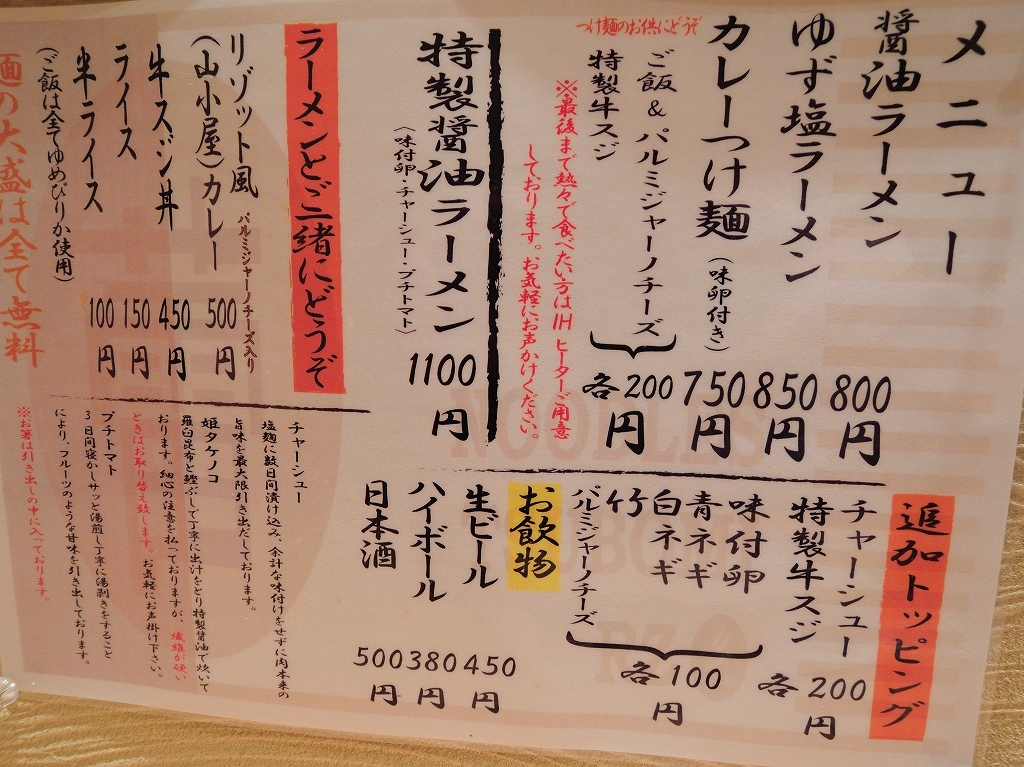 メニュー
醤油ラーメン 800円
ゆず塩ラーメン 850円
カレーつけ麺（味卵付き） 750円
つけ麺のお供にどうぞ
ご飯&パルミジャーノチーズ
特製牛スジ
各200円
※最後まで熱々で食べたい方はIHヒーターご用意
しております。お気軽にお声かけください。
特製醤油ラーメン 1100円
（味付卵・チャーシュー・プチトマト）
ラーメンとご一緒にどうぞ
リゾット風 パルミジャーノチーズ入り
（山小屋）カレー 500円
牛スジ丼 450円
ライス 150円
半ライス 100円
（ご飯は全てゆめぴりか使用）
麺の大盛は全て無料
追加トッピング
チャーシュー
特製牛スジ
各200円
味付卵
青ネギ
白ネギ
竹
パルミジャーノチーズ
各100円
お飲物
生ビール 450円
ハイボール 380円
日本酒 500円
チャーシュー
塩麹に数日間漬け込み、余計な味付けをせずに肉本来の
旨味を最大限引き出だしております。
姫タケノコ
羅臼昆布と鰹ぶしで丁寧に出汁をとり特製醤油で炊いて
おります。細心の注意を払っておりますが、繊維が硬い
ときはお取り替え致します。お気軽にお声掛け下さい。
プチトマト
3日間寝かしサッと湯煎し丁寧に湯剥きをすること
により、フルーツのような甘味を引き出しております。
※お箸は引き出しの中に入っております。